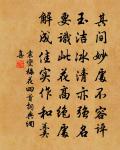 其間妙處不容評
玉潔冰清亦強名
要識此花高絕處
解成佳實作和羹
袁燮梅花四首